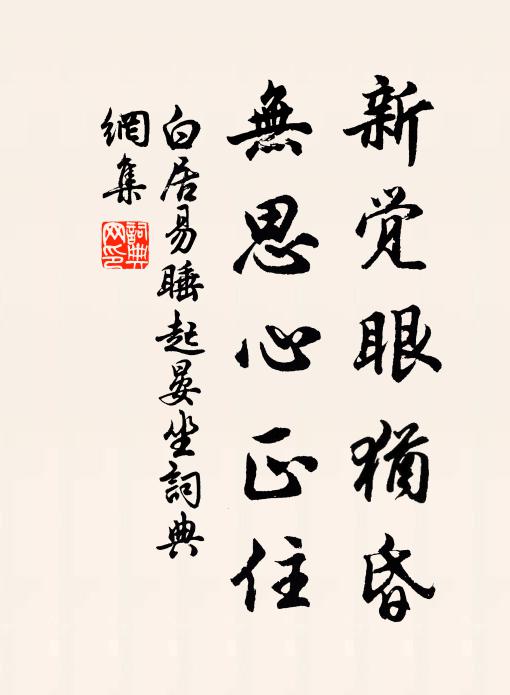 新觉眼猶昏
無思心正住
白居易睡起晏坐詞典
網集
詞典
网印